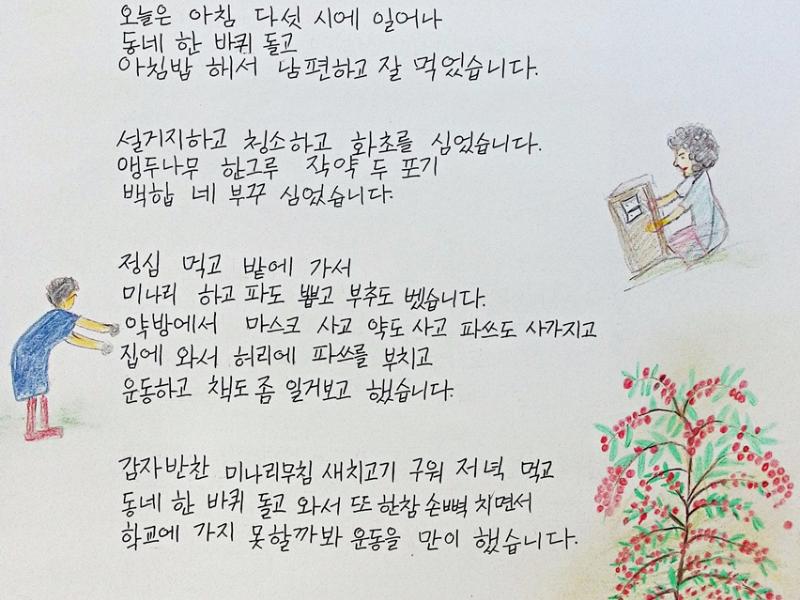 오늘은 아침 다섯 시에 일어나
동네 한 바퀴 돌고
아침밥 해서 남편하고 잘 먹었습니다.
설거지하고 청소하고 화초를 심었습니다.
앵두나무 한그루 작약 두 포기
백합 네 부꾸 심었습니다.
정심 먹고 밭에 가서
미나리 하고 파도 뽑고 부추도 벴습니다.
약방에서 마스크 사고 약도 사고 파쓰도 사가지고
집에 와서 허리에 파쓰를 부치고
운동하고 책도 좀 일거보고 했습니다.
감자반찬 미나리무침 새치고기 구워 저녁 먹고
동네 한 바퀴 돌고 와서 또 한참 손뼉 치면서
학교에 가지 못할까봐 운동을 만이 했습니다.